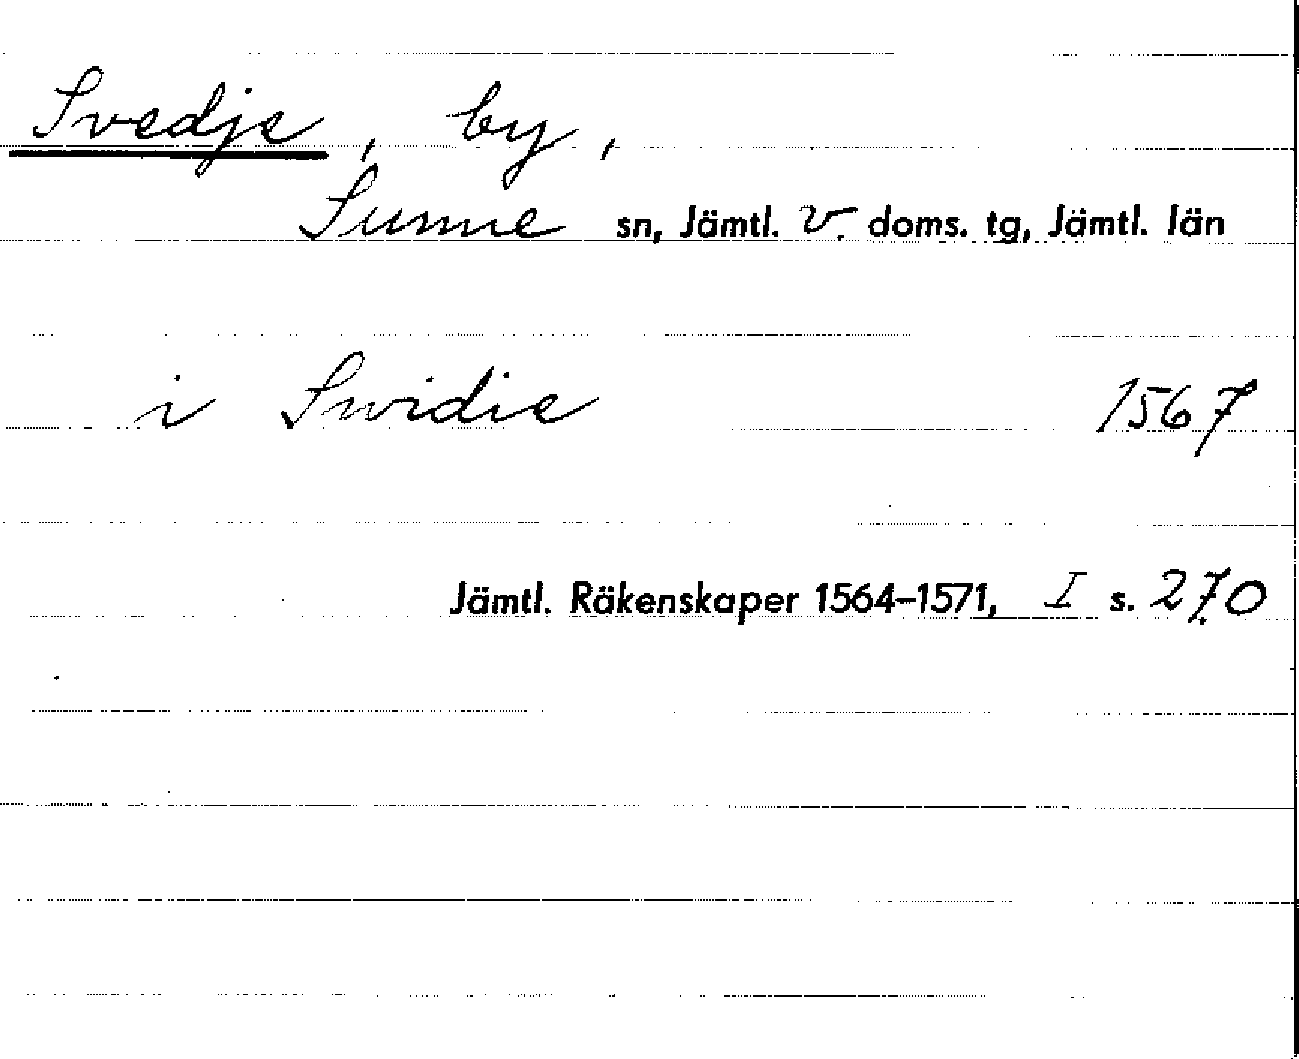 Svedje, by,
Sunne sn, Jämtl. v. doms. tg, Jämtl. län
i Swidie 1567
Jämtl. Räkenskaper 1564–1571, I s. 270